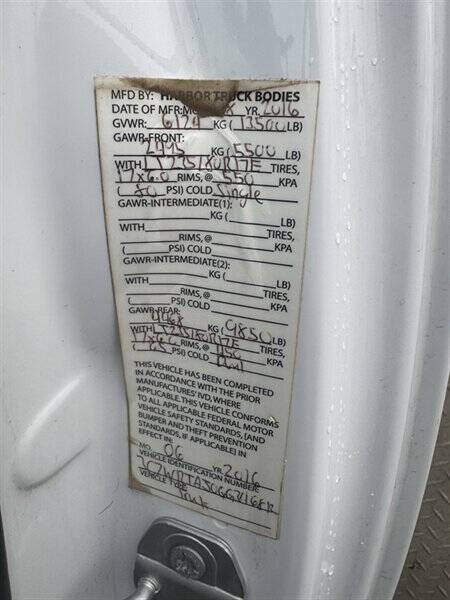 MFD BY: HARBOR TRUCK BODIES
DATE OF MFR: MO. 8 YR. 2016
GVWR: 6124 KG (13500 LB)
GAWR-FRONT:
2495 KG (5500 LB)
WITH LT235/80R17E TIRES,
17x6.0 RIMS, @ 550 KPA
(80 PSI) COLD Single
GAWR-INTERMEDIATE(1):
KG ( LB)
WITH TIRES,
RIMS, @ KPA
( PSI) COLD
GAWR-INTERMEDIATE(2):
KG ( LB)
WITH TIRES,
RIMS, @ KPA
( PSI) COLD
GAWR-REAR:
4468 KG (9850 LB)
WITH LT235/80R17E TIRES,
17x6.0 RIMS, @ 450 KPA
(65 PSI) COLD Dual
THIS VEHICLE HAS BEEN COMPLETED
IN ACCORDANCE WITH THE PRIOR
MANUFACTURES' IVD, WHERE
APPLICABLE. THIS VEHICLE CONFORMS
TO ALL APPLICABLE FEDERAL MOTOR
VEHICLE SAFETY STANDARDS, [AND
BUMPER AND THEFT PREVENTION
STANDARDS, IF APPLICABLE] IN
EFFECT IN:
MO. 06 YR. 2016
VEHICLE IDENTIFICATION NUMBER:
VEHICLE TYPE
Truck